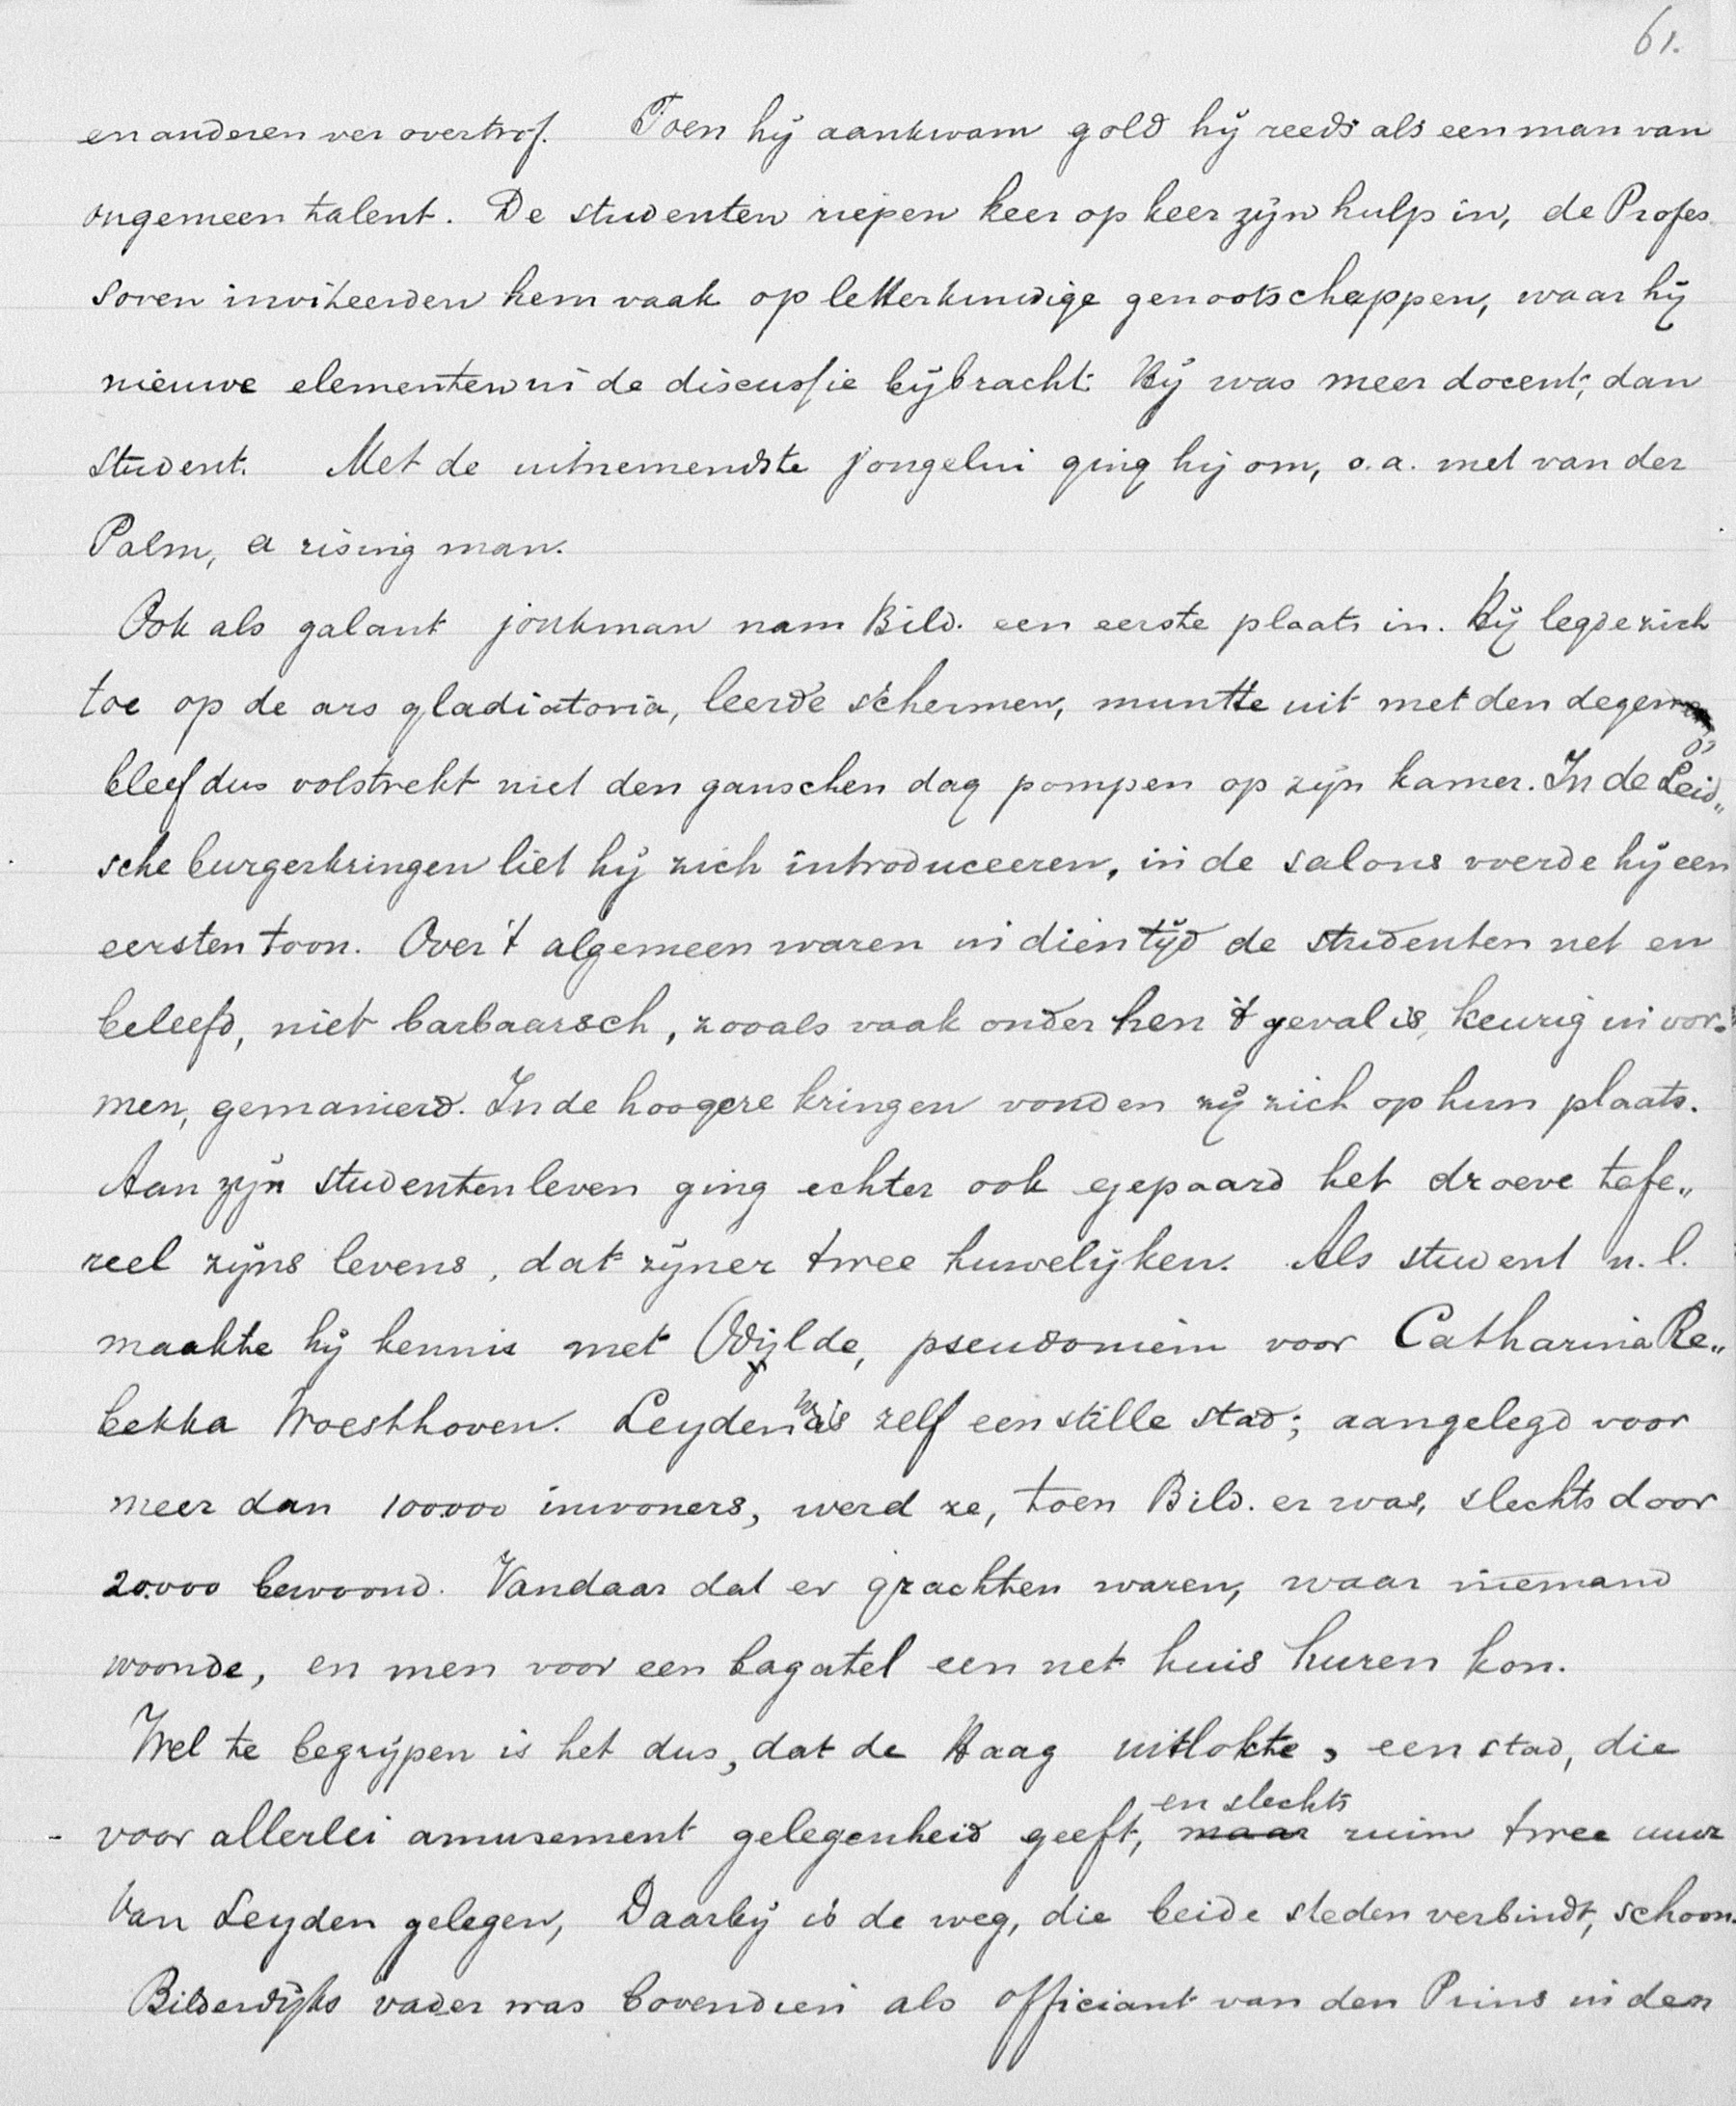 61.
en anderen ver overtrof. Toen hij aankwam gold hij reeds als een man van
ongemeen talent. De studenten riepen keer op keer zijn hulp in, de Profes
soren inviteerden hem vaak op letterkundige genootschappen, waar hij
nieuwe elementen in de discussie bijbracht. Hij was meer docent, dan
student. Met de uitnemendste jongelui ging hij om, o.a. met van der
Palm, a rising man.
Ook als galant jonkman nam Bild. een eerste plaats in. Hij legde zich
toe op de ars gladiatoria, leerde schermen, muntte uit met den degen
bleef dus volstrekt niet den ganschen dag pompen op zijn kamer. In de Leid„
sche burgerkringen liet hij zich introduceeren, in de salons voerde hij een
eersten toon. Over 't algemeen waren in dien tijd de studenten net en
beleefd, niet barbaarsch, zooals vaak onder hen 't geval is, keurig in vor-
men, gemanierd. In de hoogere kringen vonden zij zich op hun plaats.
Aan zijn studentenleven ging echter ook gepaard het droeve tafe„
reel zijns levens, dat zijner twee huwelijken. Als student n.l.
maakte hij kennis met Odilde, pseudoniem voor Catharina Re„
bekka Woesthoven. Leyden is zelf een stille stad; aangelegd voor
meer dan 100.000 inwoners, werd ze, toen Bild. er was, slechts door
20.000 bewoond. Vandaar dat er grachten waren, waar niemand
woonde, en men voor een bagatel een net huis huren kon.
Wel te begrijpen is het dus, dat de Haag uitlokte, een stad, die
en slechts
- voor allerlei amusement gelegenheid geeft, maar ruim twee uur
van Leyden gelegen, Daarbij is de weg, die beide steden verbindt, schoon.
Bilderdijks vader was bovendien als officiant van den Prins in den